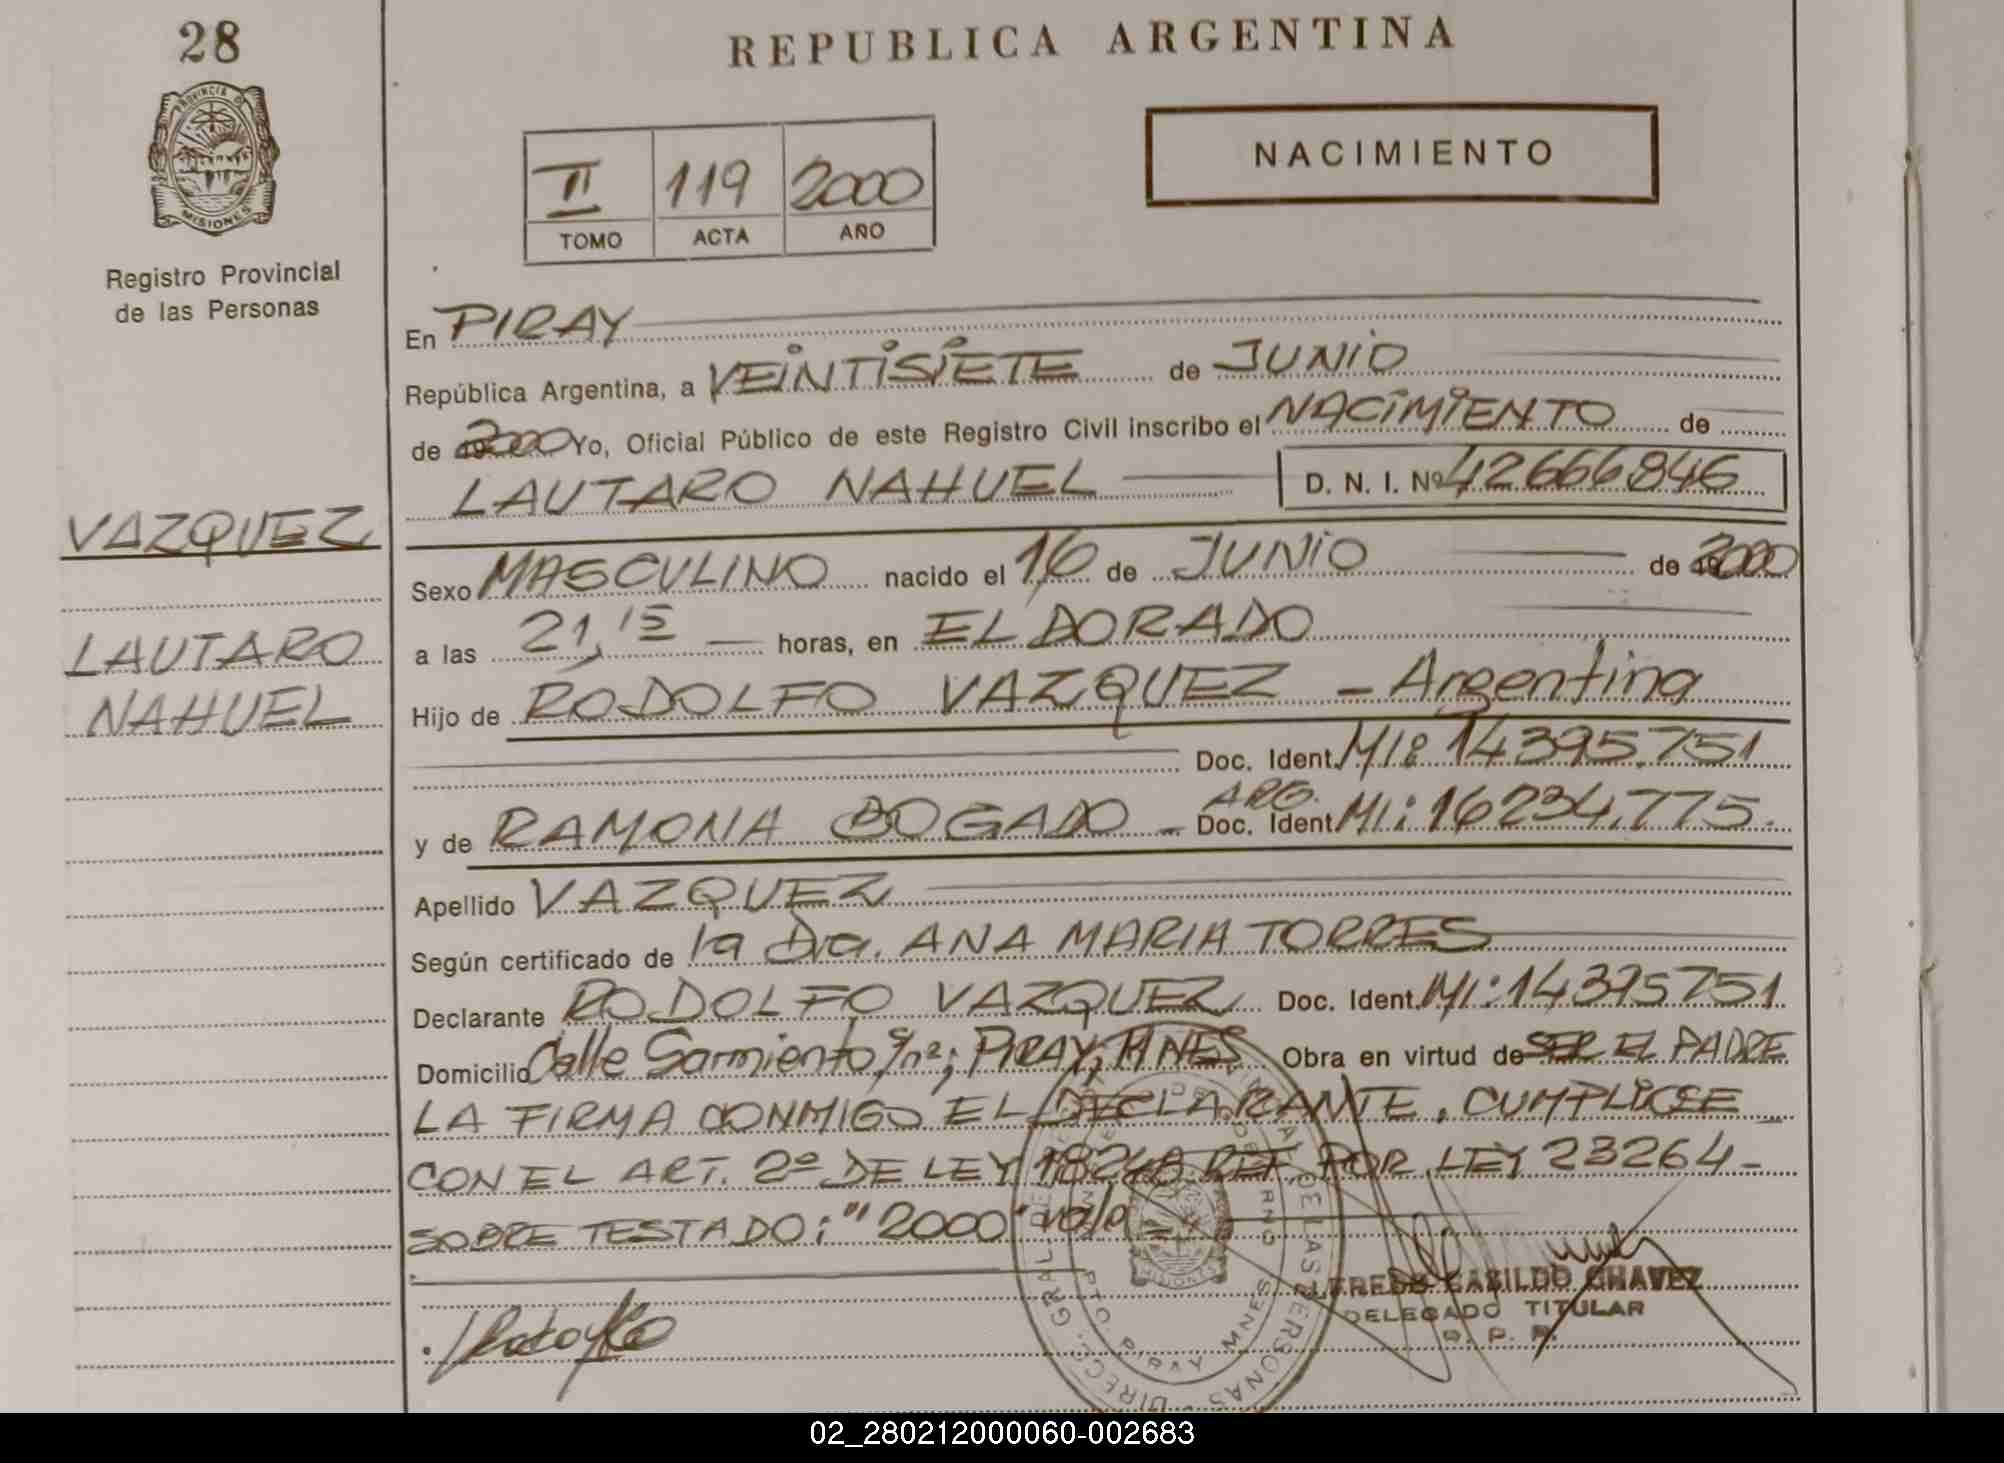 28
REPUBLICA ARGENTINA
PROVINCIA DE
MISIONES
Registro Provincial
de las Personas
NACIMIENTO
II 119 2000
TOMO ACTA AÑO
En PIRAY
República Argentina, a VEINTISIETE de JUNIO
de 2000 Yo, Oficial Público de este Registro Civil inscribo el NACIMIENTO de
LAUTARO NAHUEL D. N. I. Nº 42666846
VAZQUEZ
LAUTARO
NAHUEL
Sexo MASCULINO nacido el 16 de JUNIO de 2000
a las 21,15 horas, en ELDORADO
Hijo de RODOLFO VAZQUEZ - Argentina
Doc. Ident. MI: 14395.751
y de RAMONA BOGADO - ARG. Doc. Ident. MI: 16234.775.
Apellido VAZQUEZ
Según certificado de la Dra. ANA MARIA TORRES
Declarante RODOLFO VAZQUEZ Doc. Ident. MI: 14395751
Domicilio Calle Sarmiento s/nº; PIRAY, MNES Obra en virtud de SER EL PADRE
LA FIRMA CONMIGO EL DECLARANTE, CUMPLICSE
CON EL ART. 2º DE LEY 18248 REF. POR LEY 23264-
SOBRE TESTADO: "2000" vale
ALFREDO CASILDO CHAVEZ
DELEGADO TITULAR
R. P. P.
PTO. PIRAY MNES
02_280212000060-002683